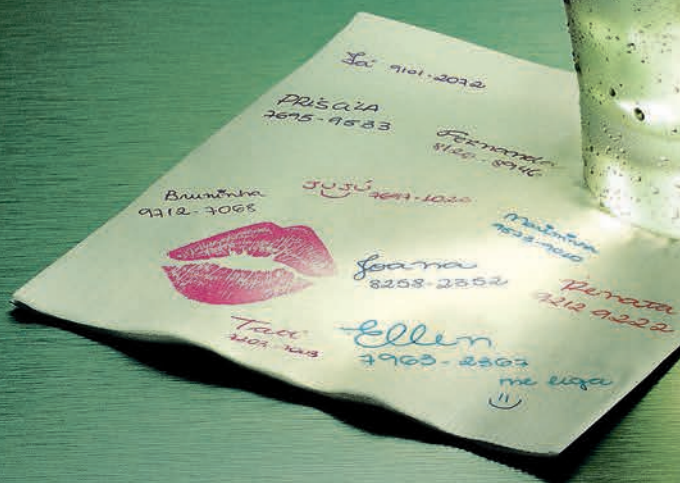 Já 9101-2072
PRiSciLA
7695-9533
Fernanda
8120-8946
Bruninha
9712-7068
JUJÚ 7697-1020
Mairinha
Joana
8258-2352
Renata
9212 9222
Ellen
7963-2367
me liga